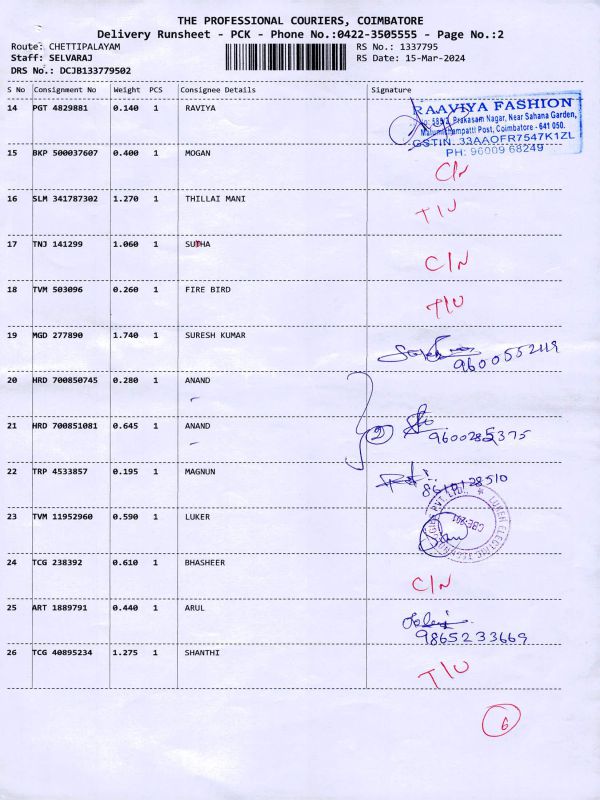 THE PROFESSIONAL COURIERS, COIMBATORE
Delivery Runsheet - PCK - Phone No.:0422-3505555 - Page No.:2
Route: CHETTIPALAYAM RS No.: 1337795
Staff: SELVARAJ RS Date: 15-Mar-2024
DRS No.: DCJB133779502
S No Consignment No Weight PCS Consignee Details Signature
14 PGT 4829881 0.140 1 RAVIYA
RAAVIYA FASHION
No: 589/2, Prakasam Nagar, Near Sahana Garden,
Malumichampatti Post, Coimbatore - 641 050.
GSTIN: 33AAOFR7547K1ZL
PH: 96009 68249
15 BKP 500037607 0.400 1 MOGAN
C/N
16 SLM 341787302 1.270 1 THILLAI MANI
T/U
17 TNJ 141299 1.060 1 SUDHA
C/N
18 TVM 503096 0.260 1 FIRE BIRD
T/U
19 MGD 277890 1.740 1 SURESH KUMAR
9600552119
20 HRD 700850745 0.280 1 ANAND
21 HRD 700851081 0.645 1 ANAND
2
9600285375
22 TRP 4533857 0.195 1 MAGNUN
8610128510
23 TVM 11952960 0.590 1 LUKER
LUKER ELECTRIC TECHNOLOGIES PVT. LTD.
CBE-201
24 TCG 238392 0.610 1 BHASHEER
C/N
25 ART 1889791 0.440 1 ARUL
9865233669
26 TCG 40895234 1.275 1 SHANTHI
T/U
6